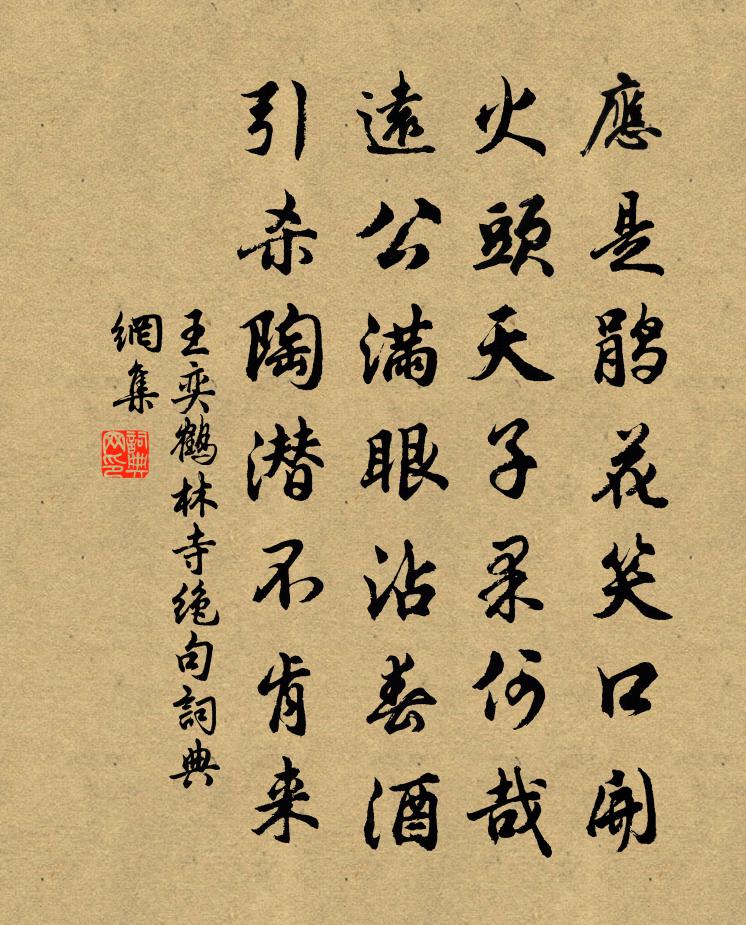 應是鹃花笑口開
火頭天子果何哉
遠公滿眼沽春酒
引杀陶潜不肯来
王奕鶴林寺绝句詞典
網集
詞典
网印